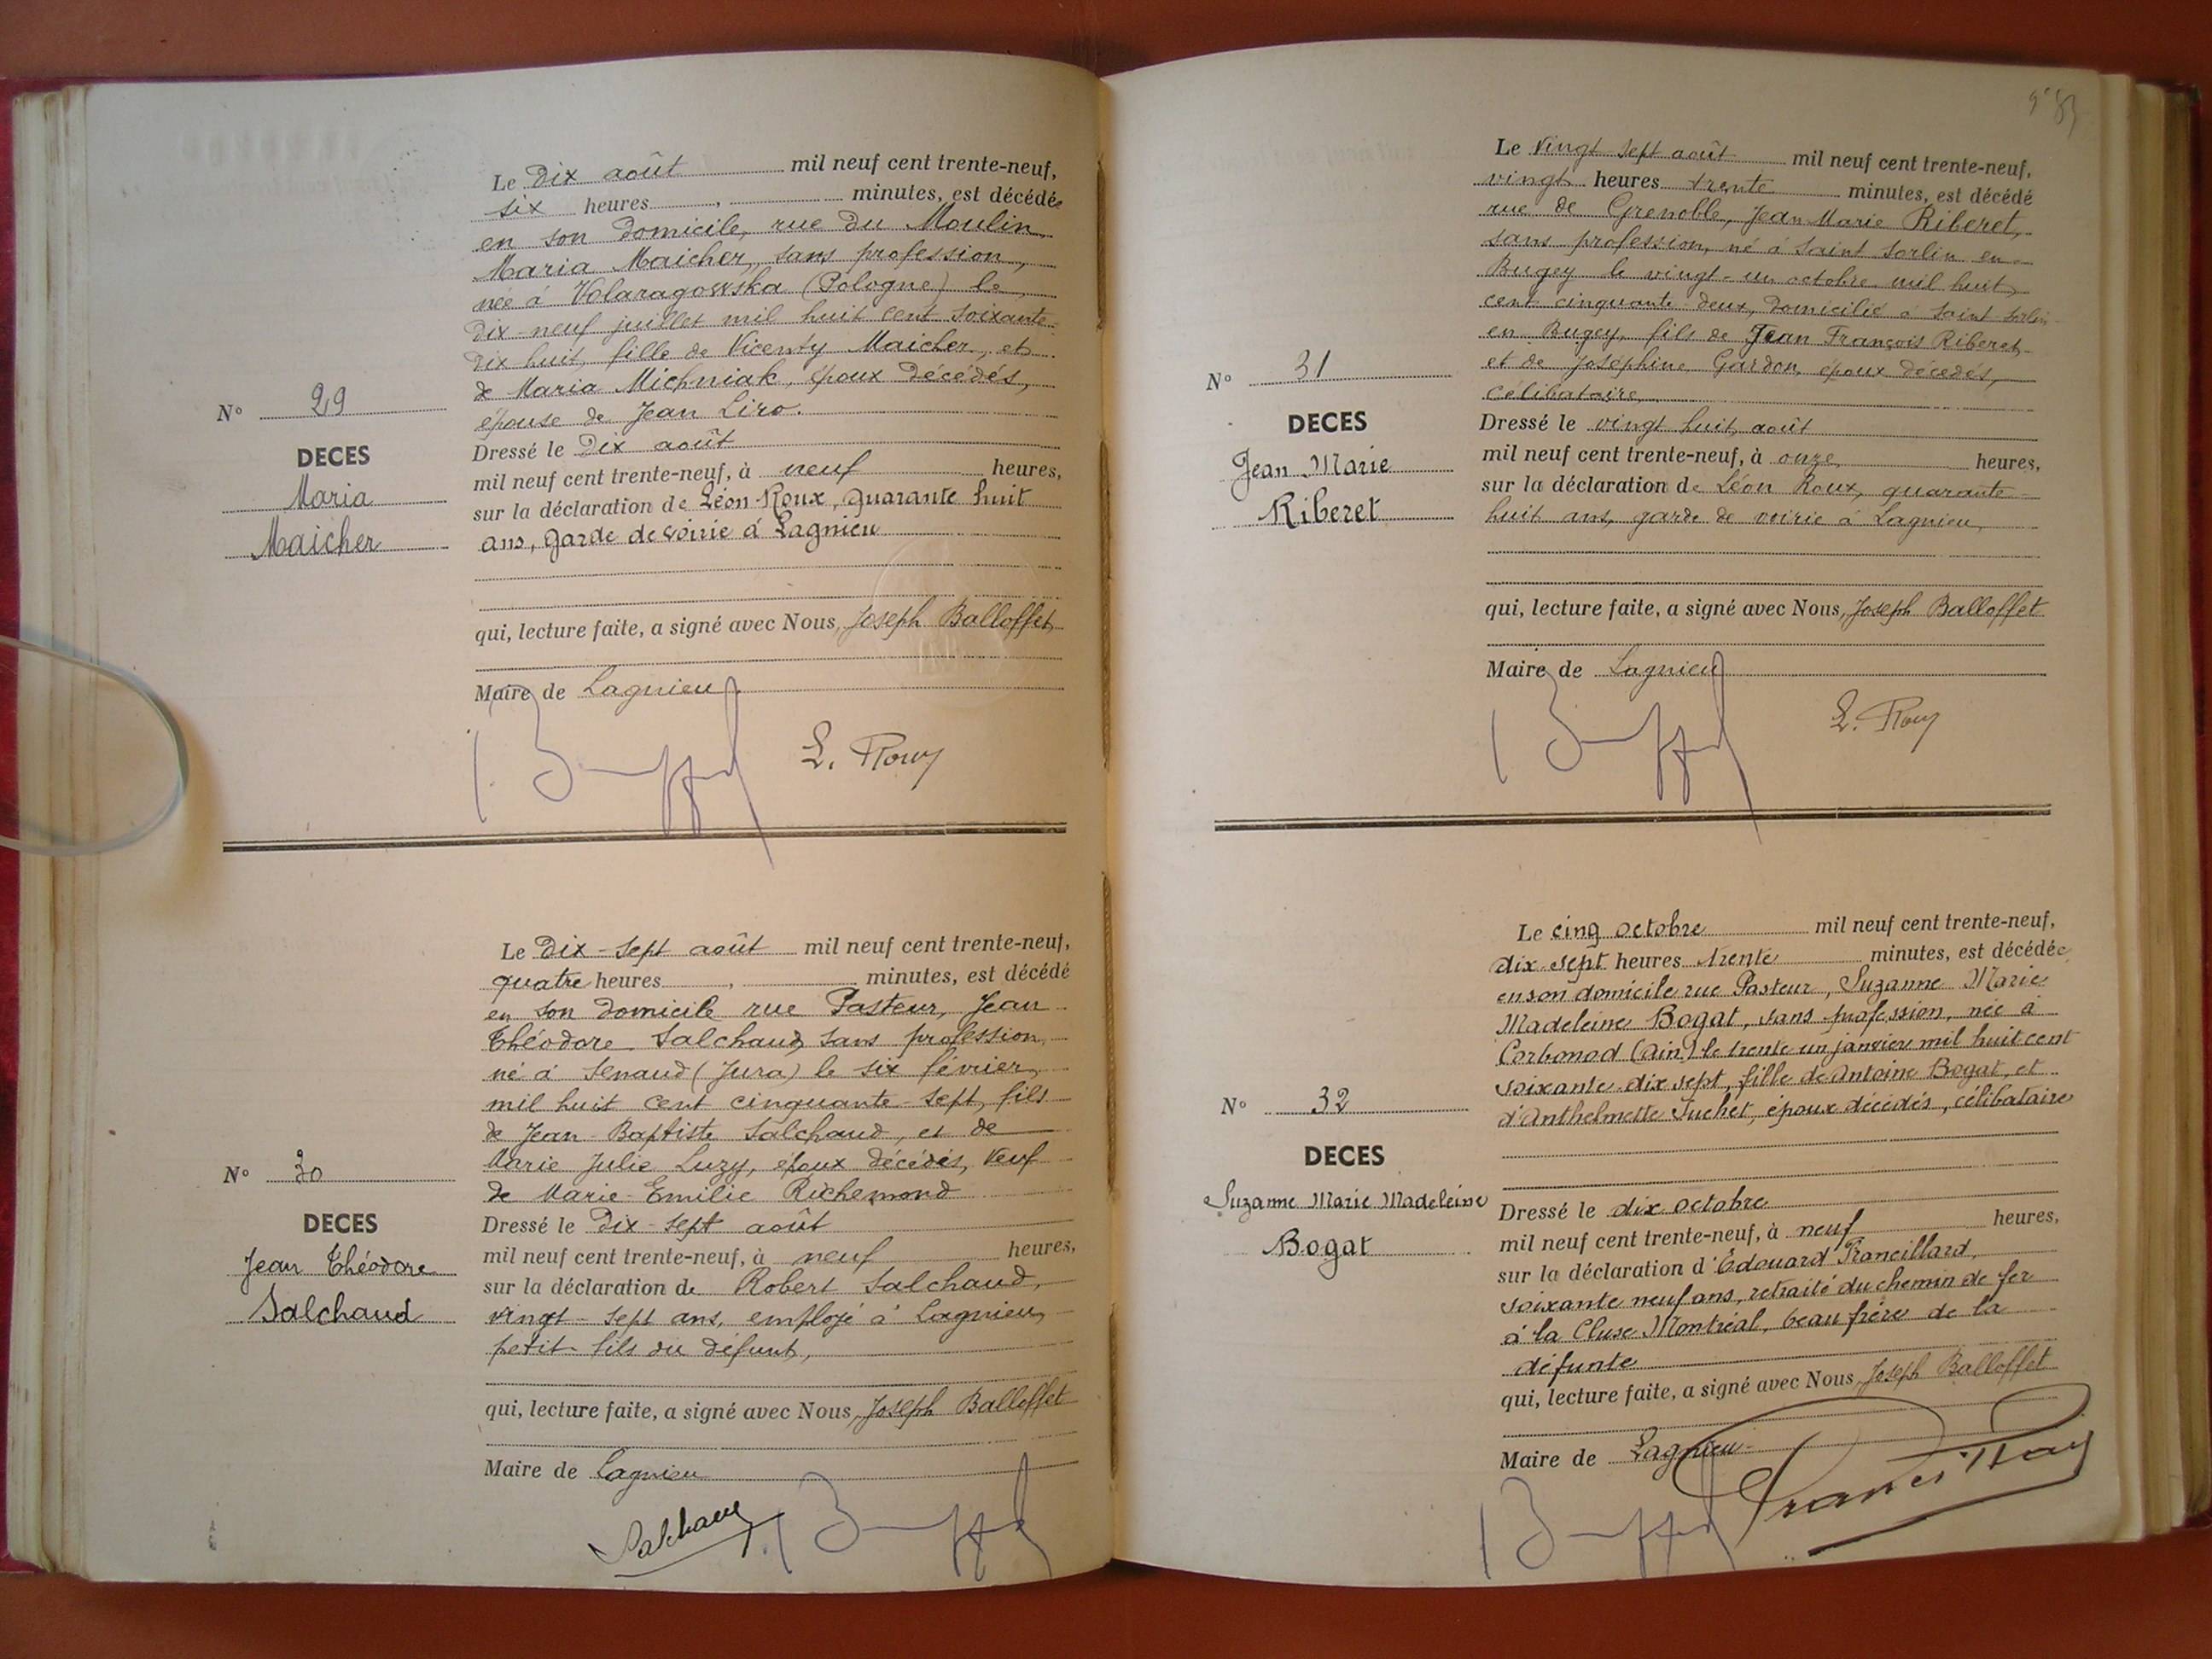 Le Dix août mil neuf cent trente-neuf,
six heures , minutes, est décédée
en son domicile, rue du Moulin,
Maria Maicher, sans profession,
née à Volaragowska (Pologne) le
dix-neuf juillet mil huit cent soixante-
dix huit, fille de Vicenty Maicher, et
de Maria Michniak, époux décédés,
épouse de Jean Liro.
N° 29
DECES
Maria
Maicher
Dressé le Dix août
mil neuf cent trente-neuf, à neuf heures,
sur la déclaration de Léon Roux, quarante huit
ans, garde de voirie à Lagnieu
qui, lecture faite, a signé avec Nous, Joseph Balloffet
Maire de Lagnieu
L. Roux
Le Dix-sept août mil neuf cent trente-neuf,
quatre heures , minutes, est décédé
en son domicile rue Pasteur, Jean
Théodore Salchaud, sans profession,
né à Senaud (Jura) le six février
mil huit cent cinquante-sept, fils
de Jean-Baptiste Salchaud, et de
Marie Julie Luzy, époux décédés, veuf
de Marie-Emilie Richemond
N° 30
DECES
Jean Théodore
Salchaud
Dressé le Dix-sept août
mil neuf cent trente-neuf, à neuf heures,
sur la déclaration de Robert Salchaud,
vingt-sept ans, employé à Lagnieu,
petit-fils du défunt,
qui, lecture faite, a signé avec Nous, Joseph Balloffet
Maire de Lagnieu
Salchaud
Le Vingt sept août mil neuf cent trente-neuf,
vingt heures trente minutes, est décédé
rue de Grenoble, Jean Marie Riberet,
sans profession, né à Saint Sorlin en
Bugey le vingt-un octobre mil huit
cent cinquante-deux, domicilié à Saint Sorlin
en Bugey, fils de Jean François Riberet
et de Joséphine Gardon, époux décédés,
célibataire,
N° 31
DECES
Jean Marie
Riberet
Dressé le vingt huit août
mil neuf cent trente-neuf, à onze heures,
sur la déclaration de Léon Roux, quarante
huit ans, garde de voirie à Lagnieu,
qui, lecture faite, a signé avec Nous, Joseph Balloffet
Maire de Lagnieu
L. Roux
Le cinq octobre mil neuf cent trente-neuf,
dix-sept heures trente minutes, est décédée
en son domicile rue Pasteur, Suzanne Marie
Madeleine Bogat, sans profession, née à
Corbonod (Ain) le trente un janvier mil huit cent
soixante-dix sept, fille de Antoine Bogat, et
d'Anthelmette Juchet, époux décédés, célibataire
N° 32
DECES
Suzanne Marie Madeleine
Bogat
Dressé le dix octobre
mil neuf cent trente-neuf, à neuf heures,
sur la déclaration d'Édouard Francillard,
soixante neuf ans, retraité du chemin de fer
à la Cluse Montréal, beau frère de la
défunte
qui, lecture faite, a signé avec Nous, Joseph Balloffet
Maire de Lagnieu